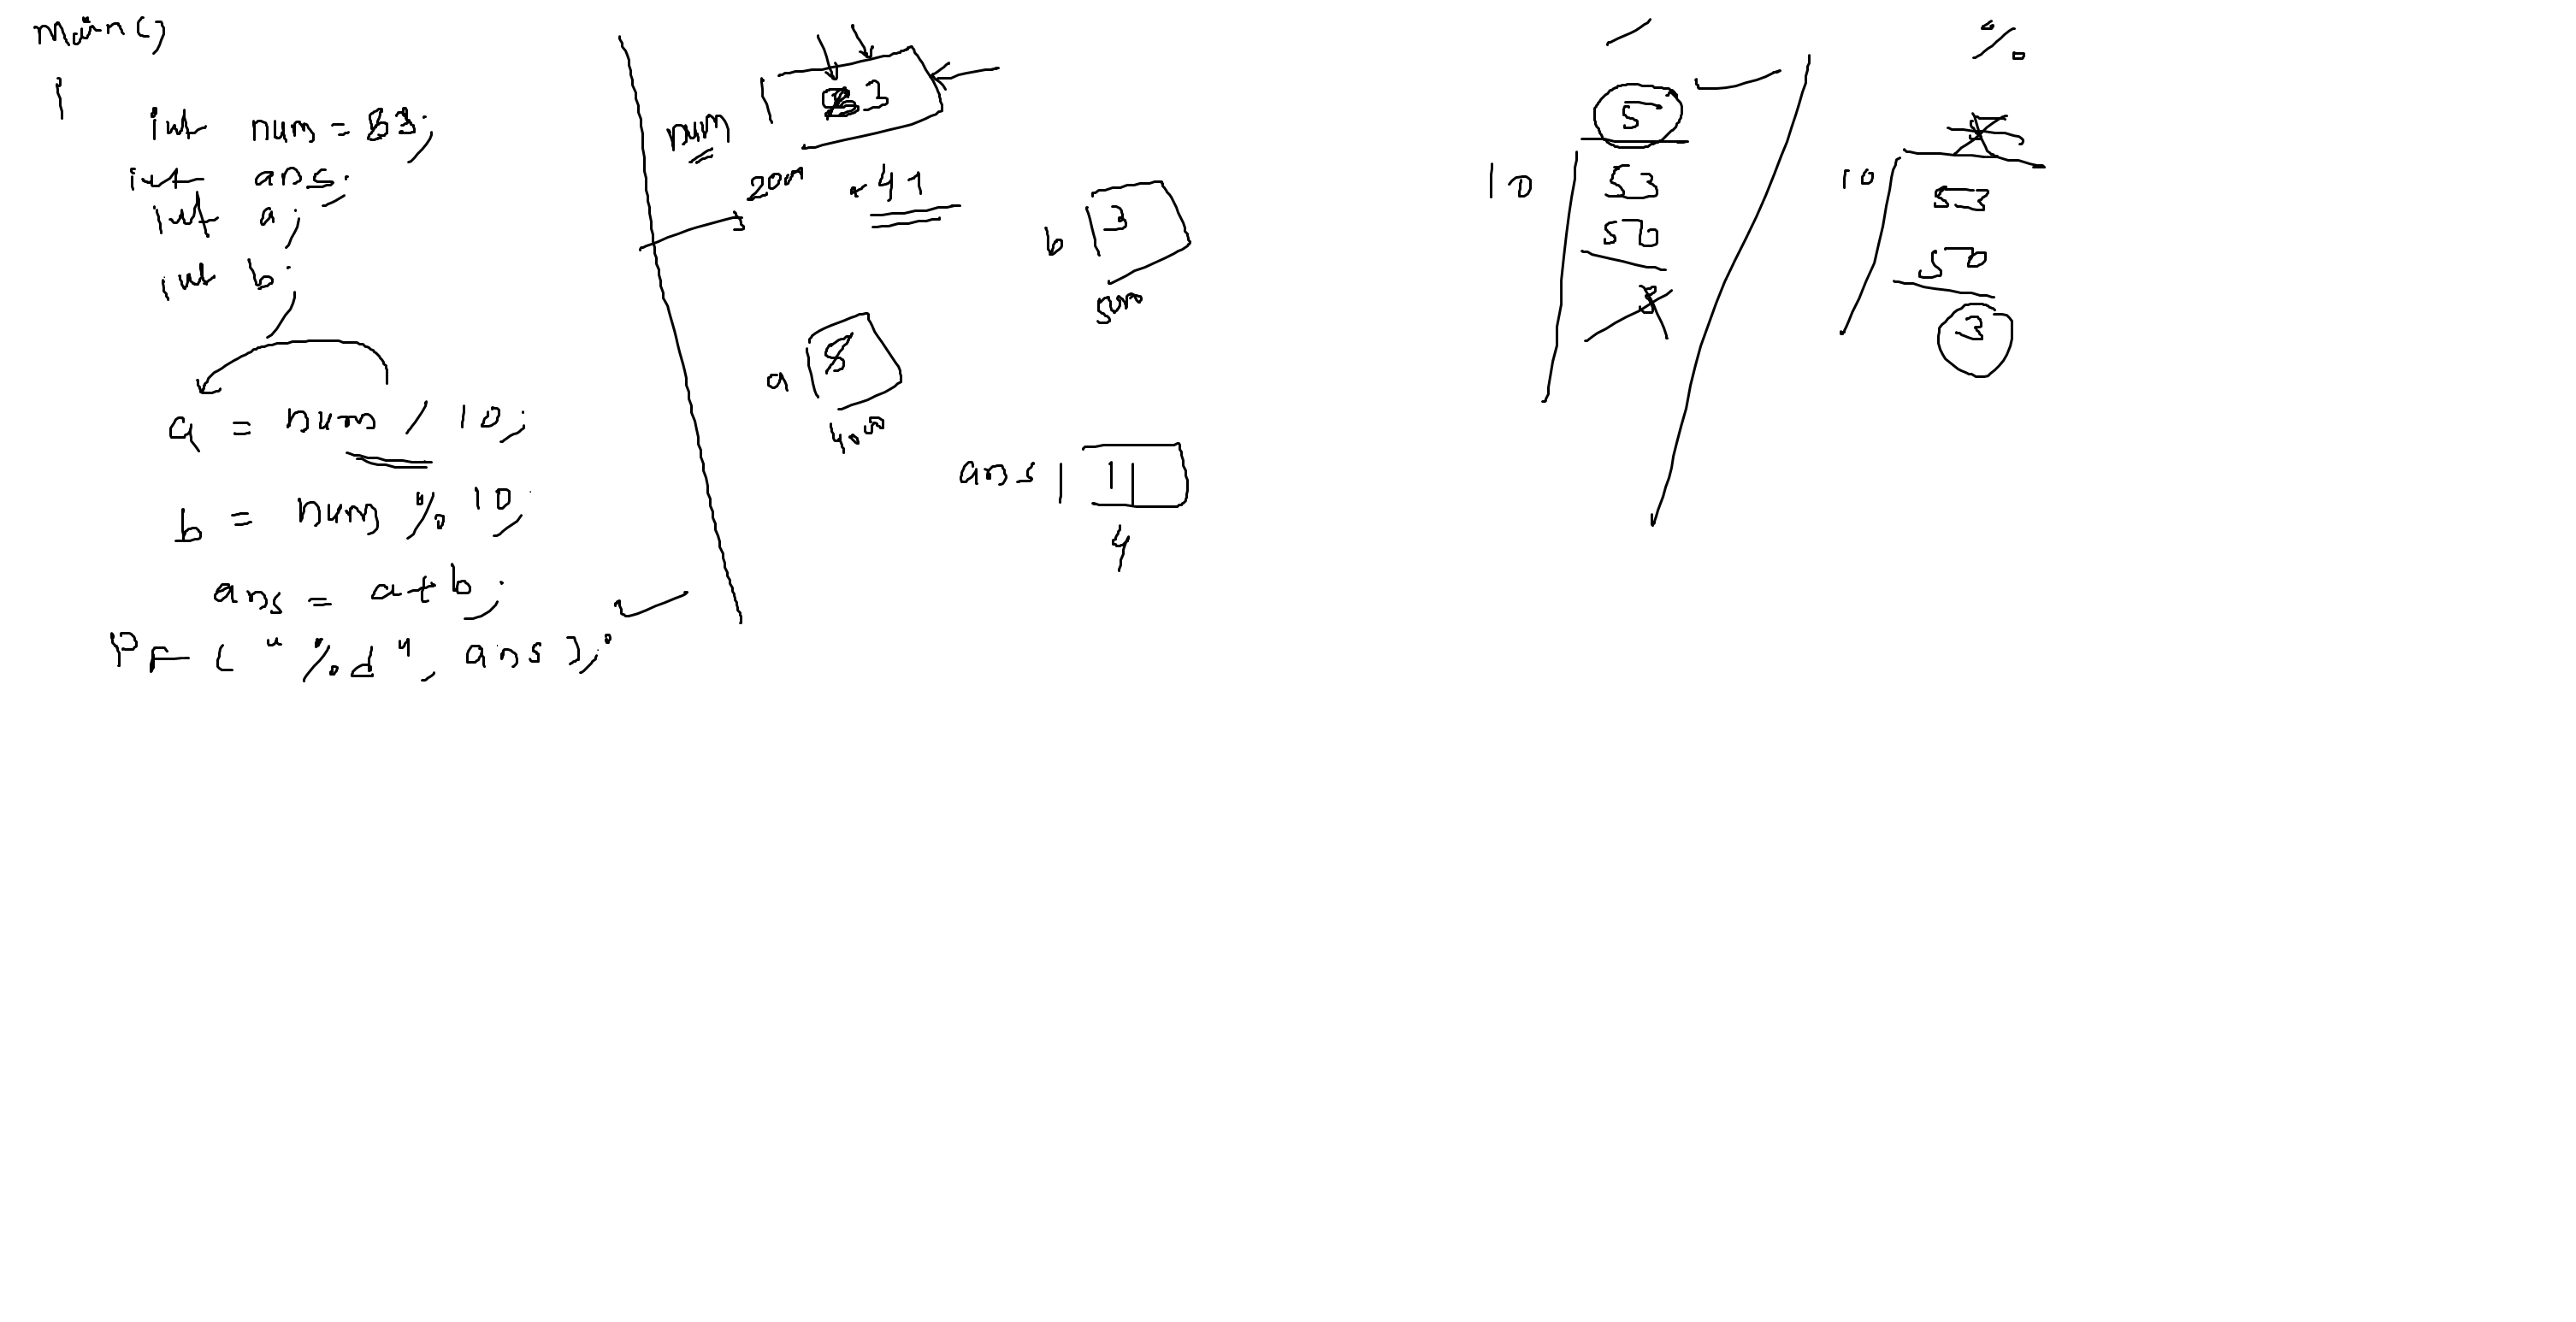 main()
int num = 83;
int ans;
int a;
int b;
a = num / 10;
b = num % 10;
ans = a+b;
PF ( "%d", ans );
num
83
41
b 3
a 8
4000
ans 11
4
/
5
10 53
50
3
%
5
10 53
50
3